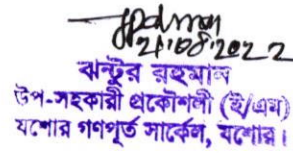 21.08.2022
ঝন্টুর রহমান
উপ-সহকারী প্রকৌশলী (ই/এম)
যশোর গণপূর্ত সার্কেল, যশোর।